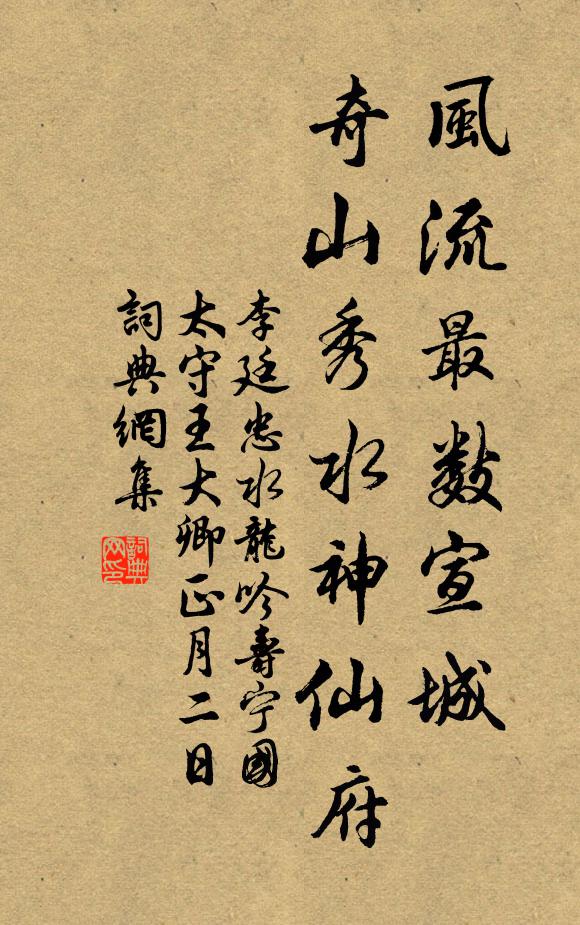 風流最數宣城
奇山秀水神仙府
李廷忠水龍吟壽宁國
太守王大卿正月二日
詞典網集
詞典
网印